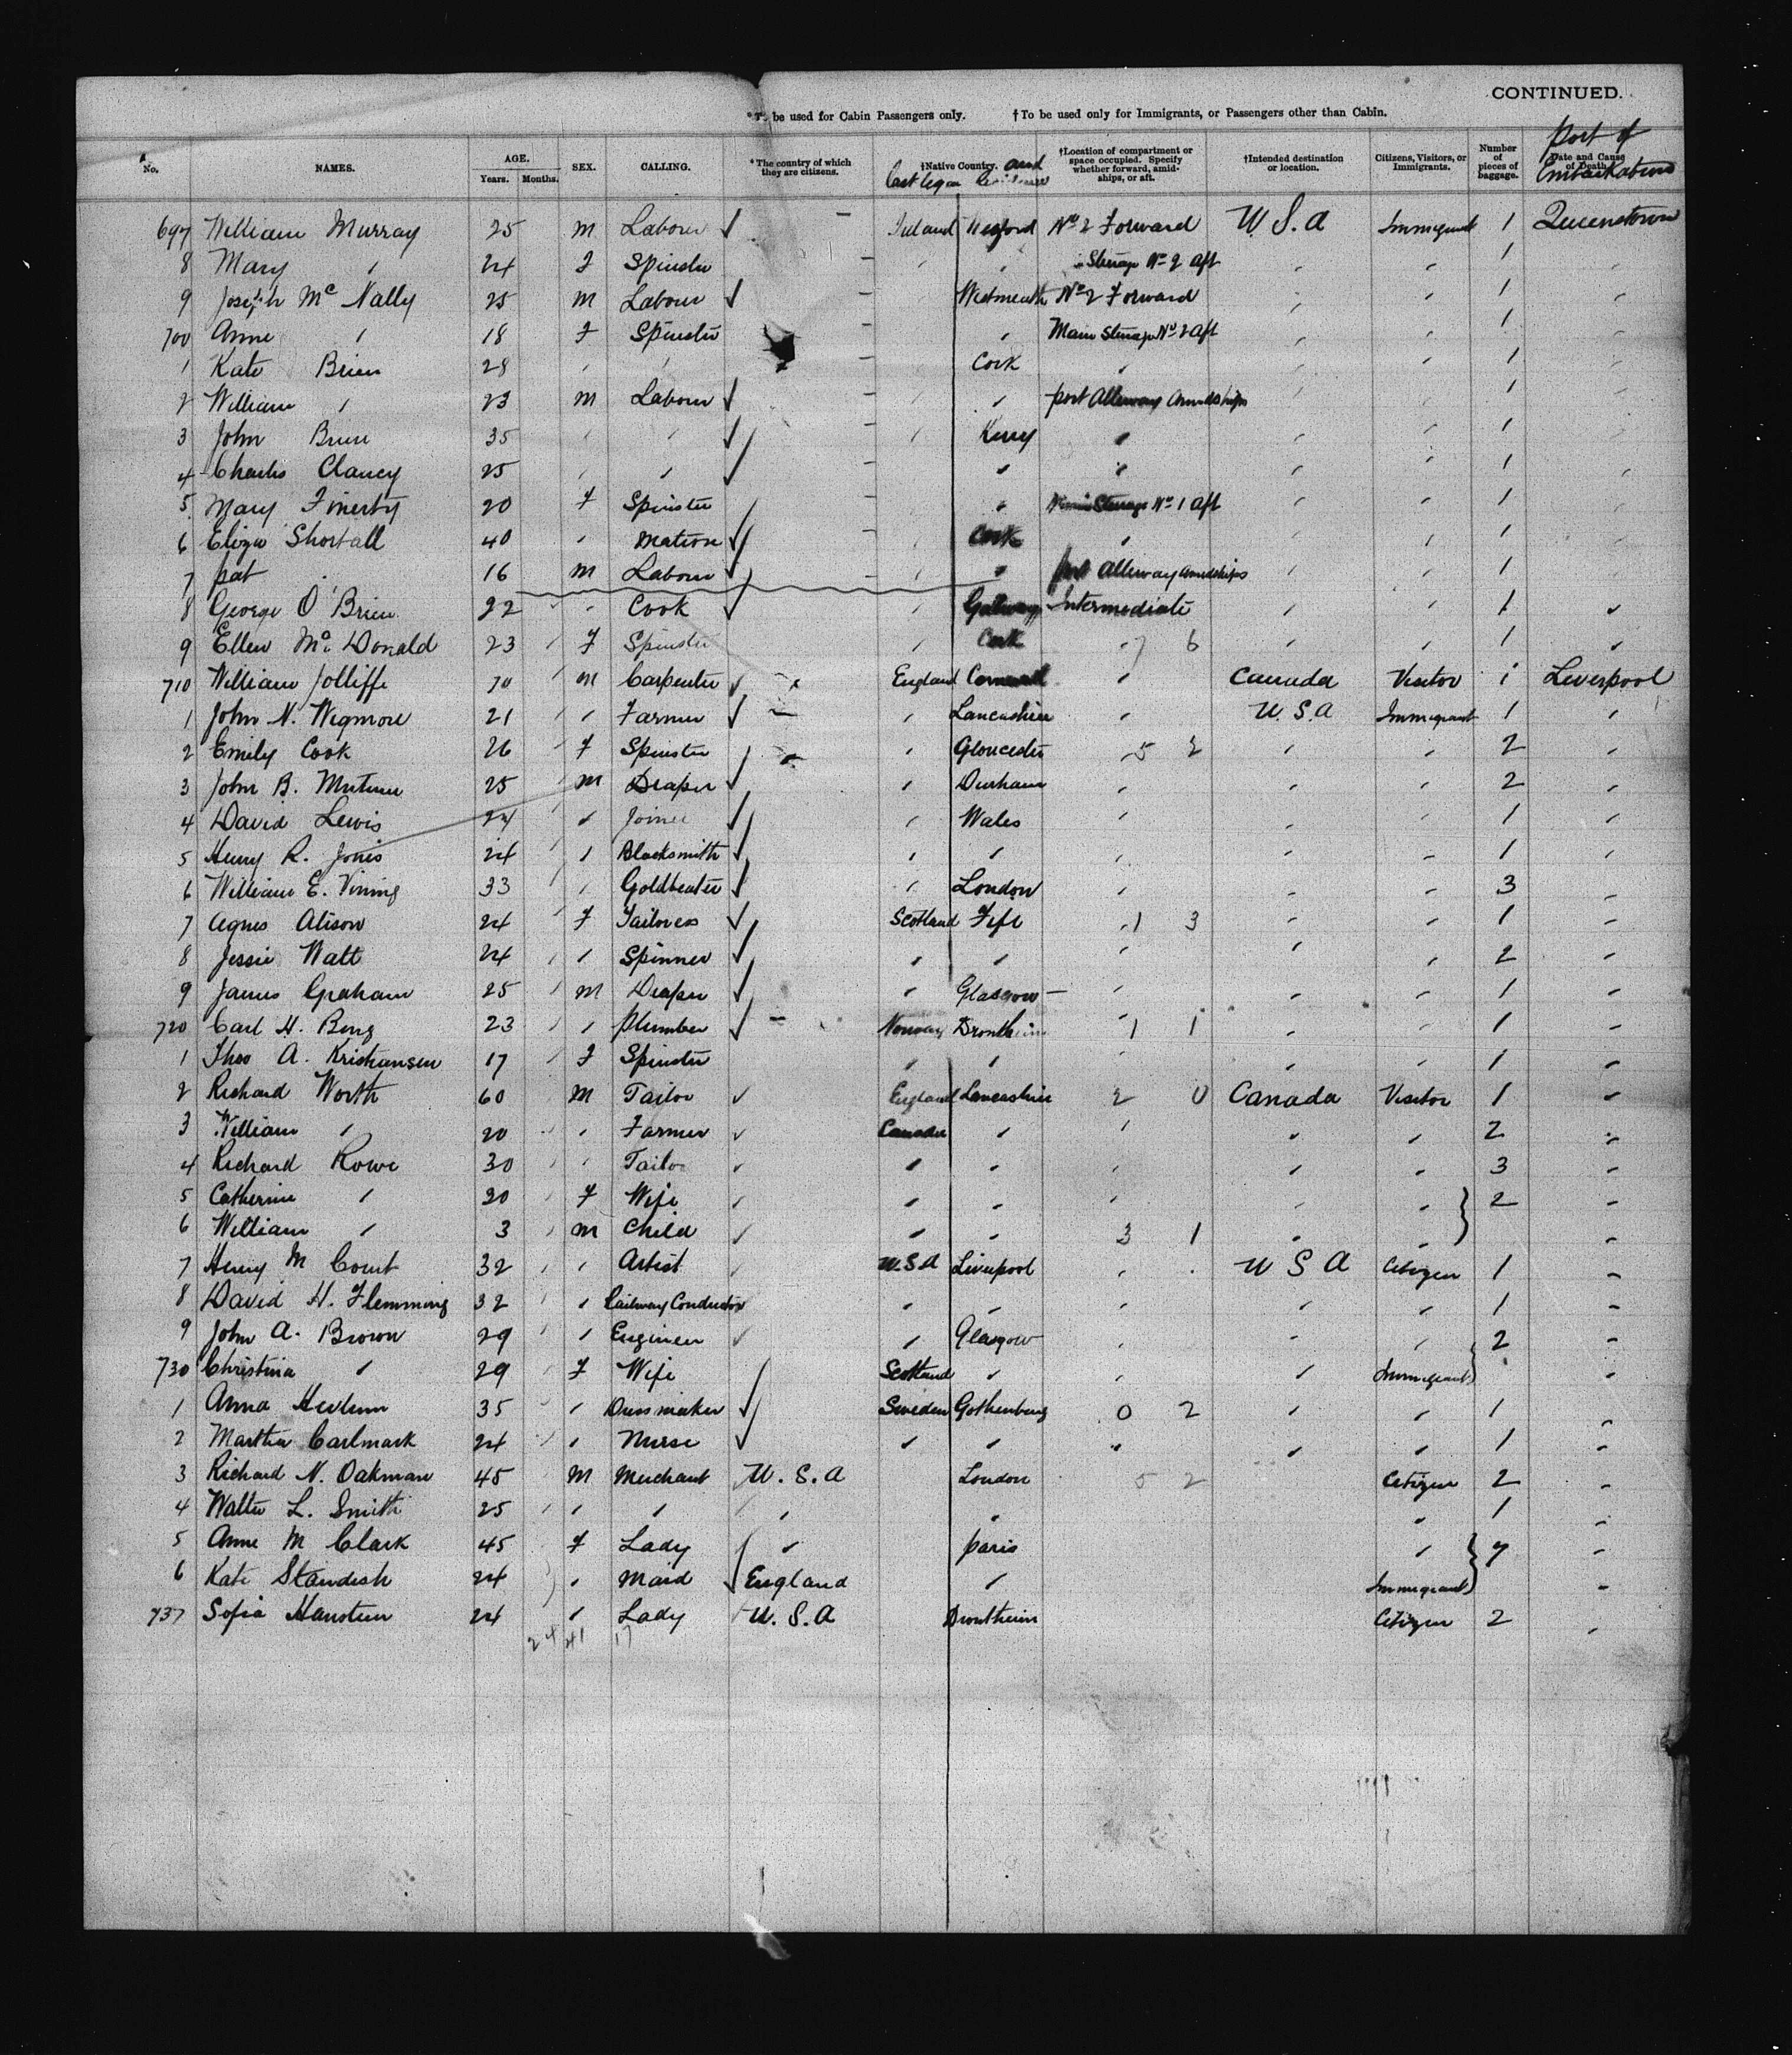 CONTINUED.
* To be used for Cabin Passengers only. † To be used only for Immigrants, or Passengers other than Cabin.
No. NAMES. AGE. Years. Months. SEX. CALLING. * The country of which they are citizens. †Native Country. and last legal Residence †Location of compartment or space occupied. Specify whether forward, amidships, or aft. †Intended destination or location. Citizens, Visitors, or Immigrants. Number of pieces of baggage. Date and Cause of Death. Port of Embarkation
697 William Murray 25 M Labourer ✓ - Ireland Wexford No 2 Forward U.S.A Immigrant 1 Queenstown
8 Mary " 24 F Spinster - " " " Steerage No 2 Aft " " 1 "
9 Joseph Mc Nally 25 M Labourer ✓ - " Westmeath No 2 Forward " " 1 "
700 Anne " 18 F Spinster - " " Main Steerage No 2 Aft " " 1 "
1 Kate Brien 28 " " - " Cork " " " 1 "
2 William " 23 M Labourer ✓ - " " port Alleway Amidships " " 1 "
3 John Brien 35 " " ✓ - " Kerry " " " 1 "
4 Charles Clancy 25 " " ✓ - " " " " " 1 "
5 Mary Finerty 20 F Spinster - " " Main Steerage No 1 Aft " " 1 "
6 Eliza Shortall 40 " Matron ✓ " Cork " " " 1 "
7 pat " 16 M Labourer ✓ - " " port Alleway Amidships " " 1 "
8 George O'Brien 22 " " Cook ✓ " Galway Intermediate " " 1 "
9 Ellen Mc Donald 23 " F Spinster " Cork " 7 6 " " 1 "
710 William Jolliffe 70 " M Carpenter ✓ England Cornwall " Canada Visitor 1 Liverpool
1 John N. Wigmore 21 " " Farmer ✓ - " Lancashire " U.S.A Immigrant 1 "
2 Emily Cook 26 " F Spinster - " Gloucester " 5 2 " " 2 "
3 John B. 25 " M Draper ✓ " Durham " " " 2 "
4 David Lewis 24 " " Joiner ✓ " Wales " " " 1 "
5 Henry R. Jones 24 " " Blacksmith ✓ " " " " " 1 "
6 William E. Vining 33 " " Goldbeater ✓ " London " " " 3 "
7 Agnes Alison 24 " F Tailoress ✓ Scotland Fife " 1 3 " " 1 "
8 Jessie Watt 24 " " Spinner ✓ " " " " " 2 "
9 James Graham 25 " M Draper ✓ " Glasgow " " " 1 "
720 Carl H. Berg 23 " " Plumber ✓ - Norway Drontheim " 1 1 " " 1 "
1 Thos A. Kristiansen 17 " F Spinster " " " " " 1 "
2 Richard Worth 60 M Tailor ✓ England Lancashire 2 0 Canada Visitor 1 "
3 William " 20 " " Farmer ✓ Canada " " " " 2 "
4 Richard Rowe 30 " " Tailor ✓ " " " " " 3 "
5 Catherine " 20 " F Wife ✓ " " " " " } 2 "
6 William " 3 " M Child ✓ " " 3 1 " " "
7 Henry M Court 32 " " Artist ✓ U.S.A Liverpool " U S A Citizen 1 "
8 David H. Flemming 32 " " Railway Conductor " " " " " 1 "
9 John A. Brown 29 " " Engineer ✓ " Glasgow " " " } 2 "
730 Christina " 29 " F Wife Scotland " " " Immigrant "
1 Anna 35 " " Dressmaker ✓ Sweden Gothenburg 0 2 " " 1 "
2 Martha Carlmark 24 " " Nurse ✓ " " " " " 1 "
3 Richard N. Oakman 45 M Merchant U.S.A London 5 2 Citizen 2 "
4 Walter L. Smith 25 " " " " " " 1 "
5 Anne M. Clark 45 F Lady " Paris " } 7 "
6 Kate Standish 24 " Maid ✓ England " Immigrant "
737 Sofia Hansteen 24 " Lady U.S.A Drontheim Citizen 2 "
24 41 17